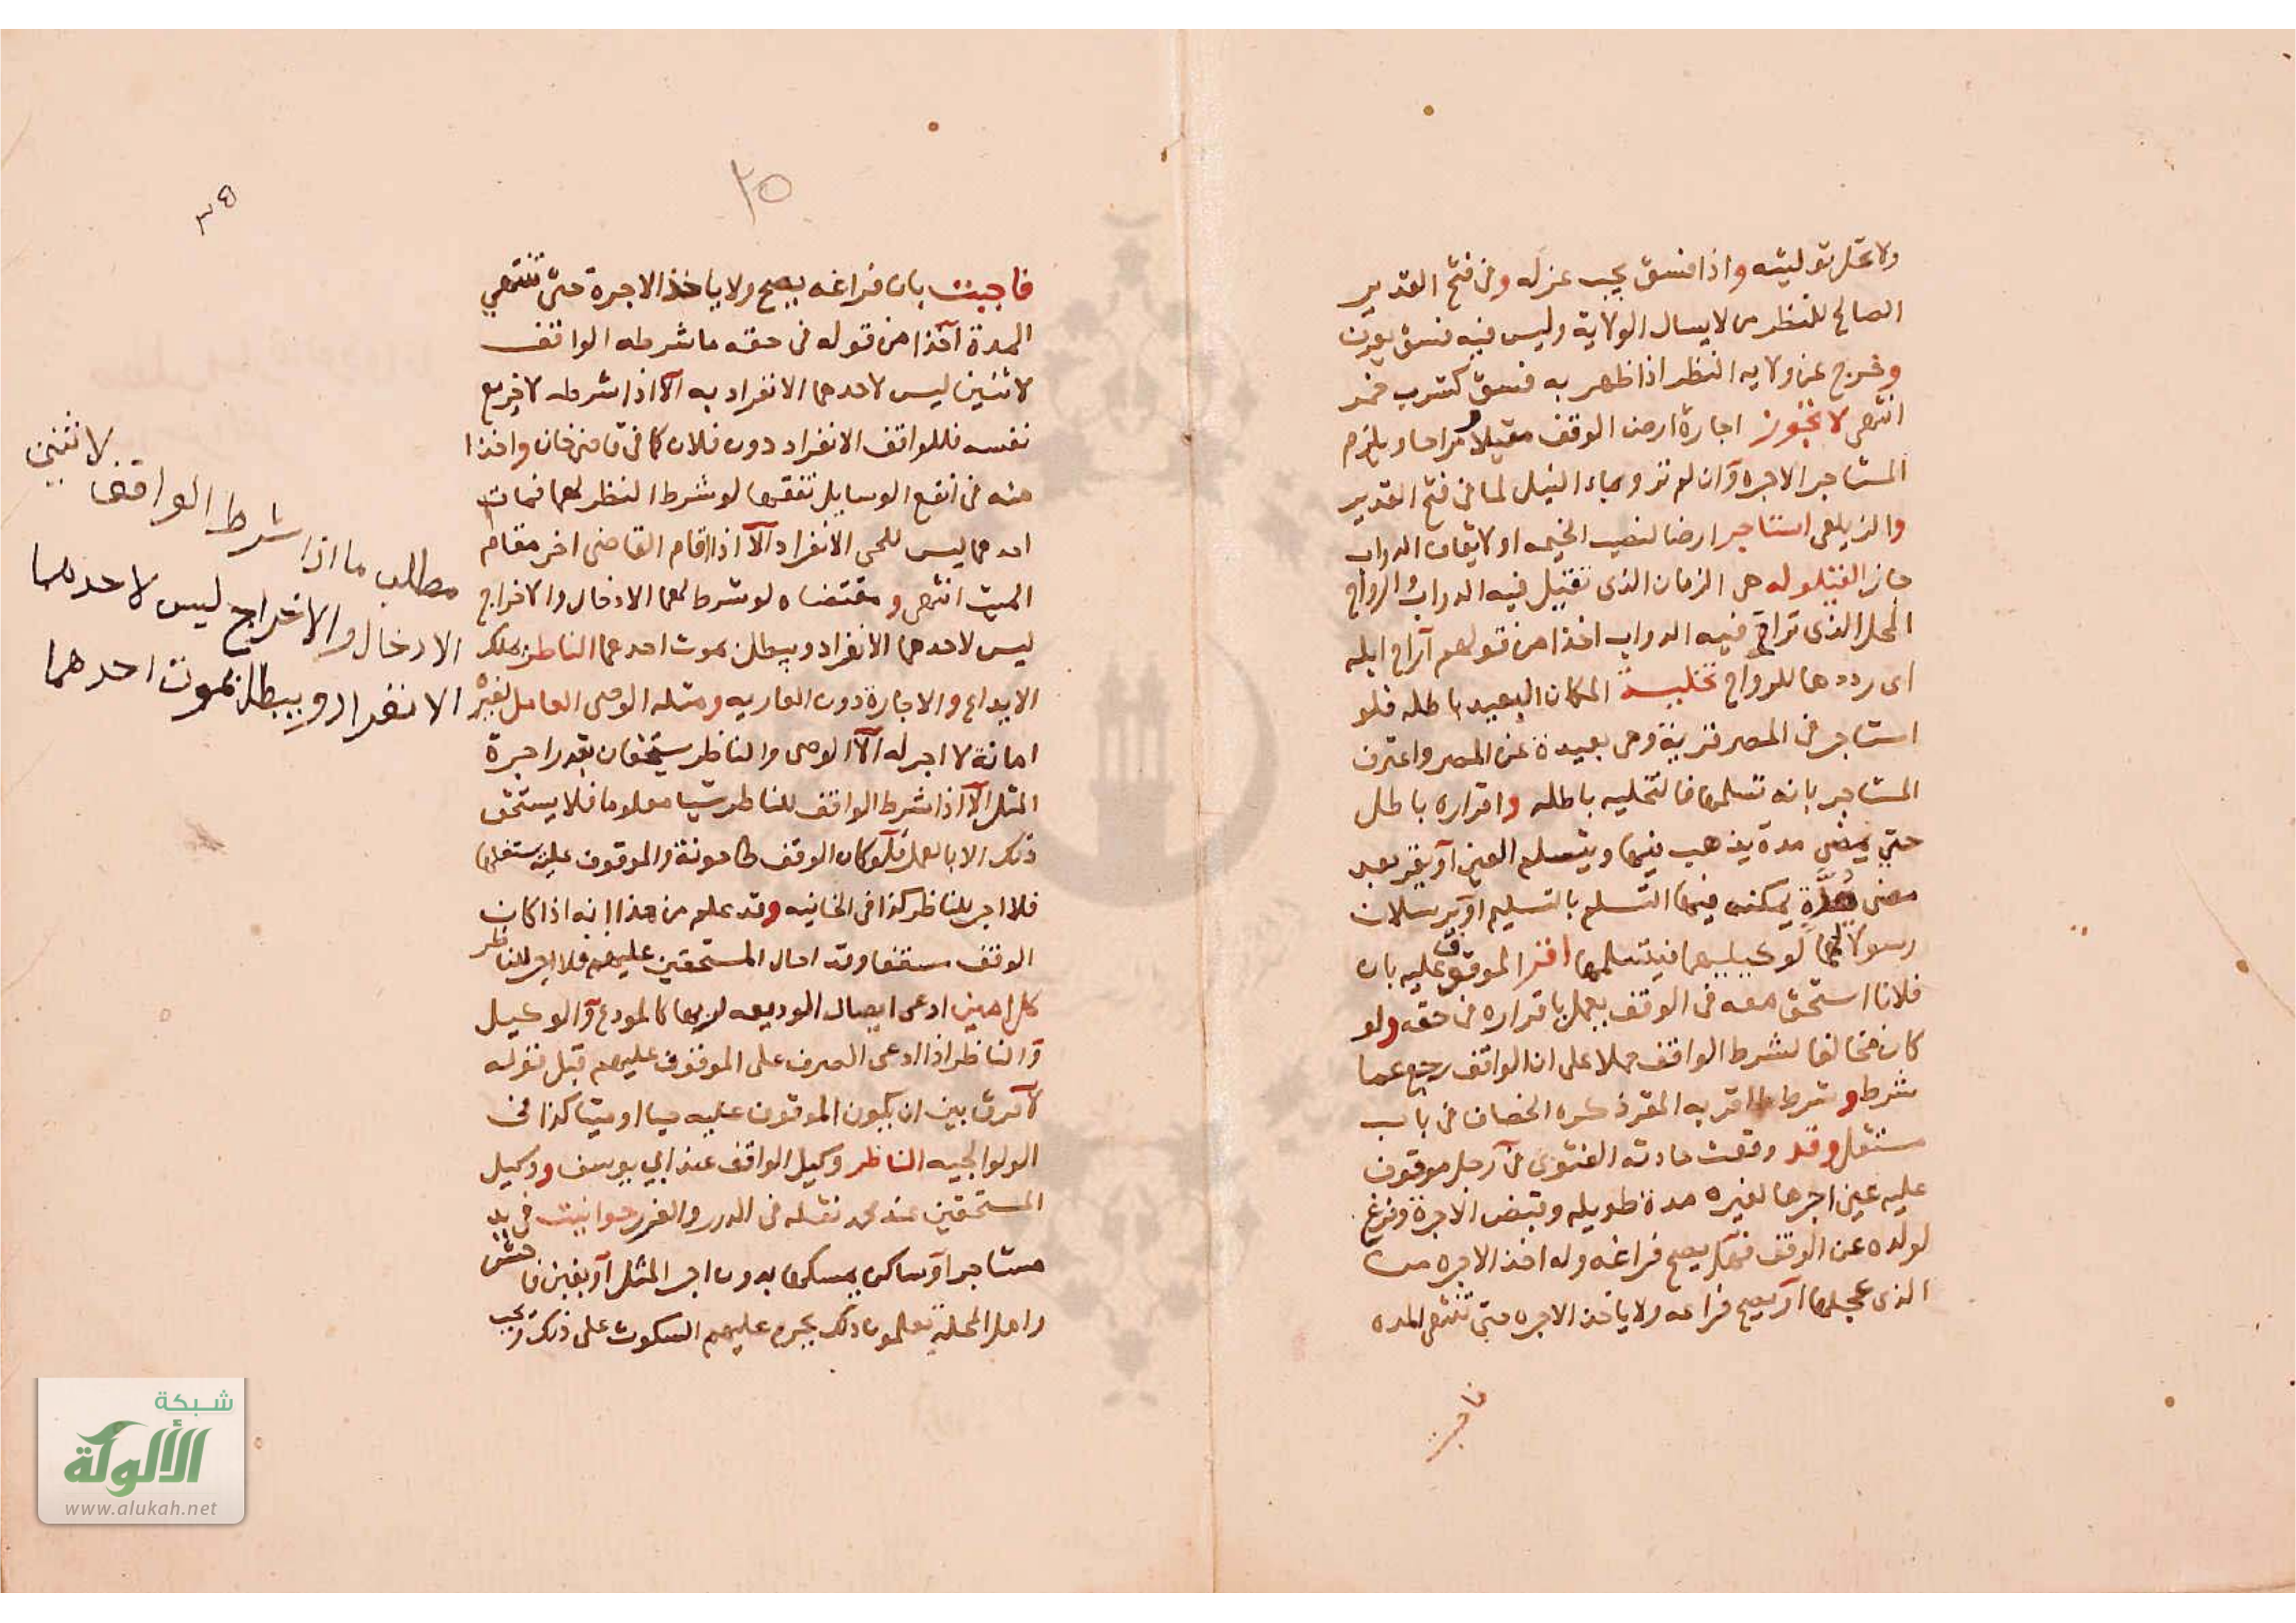 ولا تحل توليته واذا فسق يجب عزله وفى فتح القدير
الصالح للنظر من لا يسال الولاية وليس فيه فسق يعرف
وخرج عن ولايه النظر اذا ظهر به فسق كشرب خمر
انتهى لا تجوز اجارة ارض الوقف مقيلا ومراحا ويلزم
المستاجر الاجره وان لم ترو بماء النيل لما فى فتح القدير
والزيلعى استاجر ارضا لنصب الخيمه او لايقاف الدواب
جاز القيلوله هى الزمان الذى تقيل فيه الدواب والرواح
المحل الذى تراح فيه الدواب اخذا من قولهم اراح ابله
اى ردها للرواح تخلية المكان البعيد باطله فلو
استاجر فى المصر قرية وهى بعيدة عن المصر واعترف
المستاجر بانه تسلمها فالتخليه باطله واقراره باطل
حتى يمضى مدة يذهب فيها ويتسلم العين او يقر بعد
مضى مدة يمكنه فيها التسلم بالتسليم او يرسلان
رسولا لها لوكيليهما فيتسلمها اقر الموقوف عليه بان
فلانا استحق معه فى الوقف يعمل باقراره فى حقه ولو
كان مخالفا لشرط الواقف حملا على ان الواقف رجع عما
شرط وشرط ما اقر به المقر ذكره الخصاف فى باب
مستقل وقد وقعت حادثة الفتوى فى رجل موقوف
عليه عين اجرها لغيره مدة طويله وقبض الاجرة وفرغ
لولده عن الوقف فهل يصح فراغه وله اخذ الاجره من
الذى عجلها او يصح فراغه ولا ياخذ الاجره حتى تنتهى المده
فاجبت
٢٥
٣٥
فاجبت بان فراغه يصح ولا ياخذ الاجرة حتى تنتهي
المدة اخذا من قوله فى حقه ما شرطه الواقف
لاثنين ليس لاحدهما الانفراد به الا اذا شرطه
نفسه فللواقف الانفراد دون فلان كما فى قاضى خان واخذا
منه فى انفع الوسايل تفقها لو شرط النظر لهما فمات
احدهما ليس للحى الانفراد الا اذا اقام القاضى اخر مقام
الميت انتهى ومقتضاه لو شرط لهما الادخال والاخراج
ليس لاحدهما الانفراد ويبطل بموت احدهما الناظر يملك
الايداع والاجارة دون العاريه ومثله الوصى العامل لغيره
امانة لا اجر له الا الوصى والناظر يستحقان بقدر اجرة
المثل الا اذا شرط الواقف للناظر شيا معلوما فلا يستحق
ذلك الا بالعمل فلو كان الوقف طاحونة والموقوف عليه يستغلها
فلا اجر للناظر كذا فى الخانيه وقد علم من هذا انه اذا كان
الوقف سقفا وقد احال المستحقين عليهم فلا اجر للناظر
كل امين ادعى ايصال الوديعه لربها كالمودع والوكيل
والناظر اذا ادعى الصرف على الموقوف عليهم قبل قوله
لا فرق بين ان يكون الموقوف عليه حيا او ميتا كذا فى
الولوالجيه الناظر وكيل الواقف عند ابي يوسف ووكيل
المستحقين عند محمد نقله فى الدرر والغرر حوانيت فى يد
مستاجر او ساكن يسكنها بدون اجر المثل او بغبن فاحش
واهل المحله يعلمون ذلك يحرم عليهم السكوت على ذلك ويجب
مطلب ما اذا شرط الواقف لاثنين
الادخال والاخراج ليس لاحدهما
الانفراد ويبطل بموت احدهما
شبكة
الألوكة
www.alukah.net